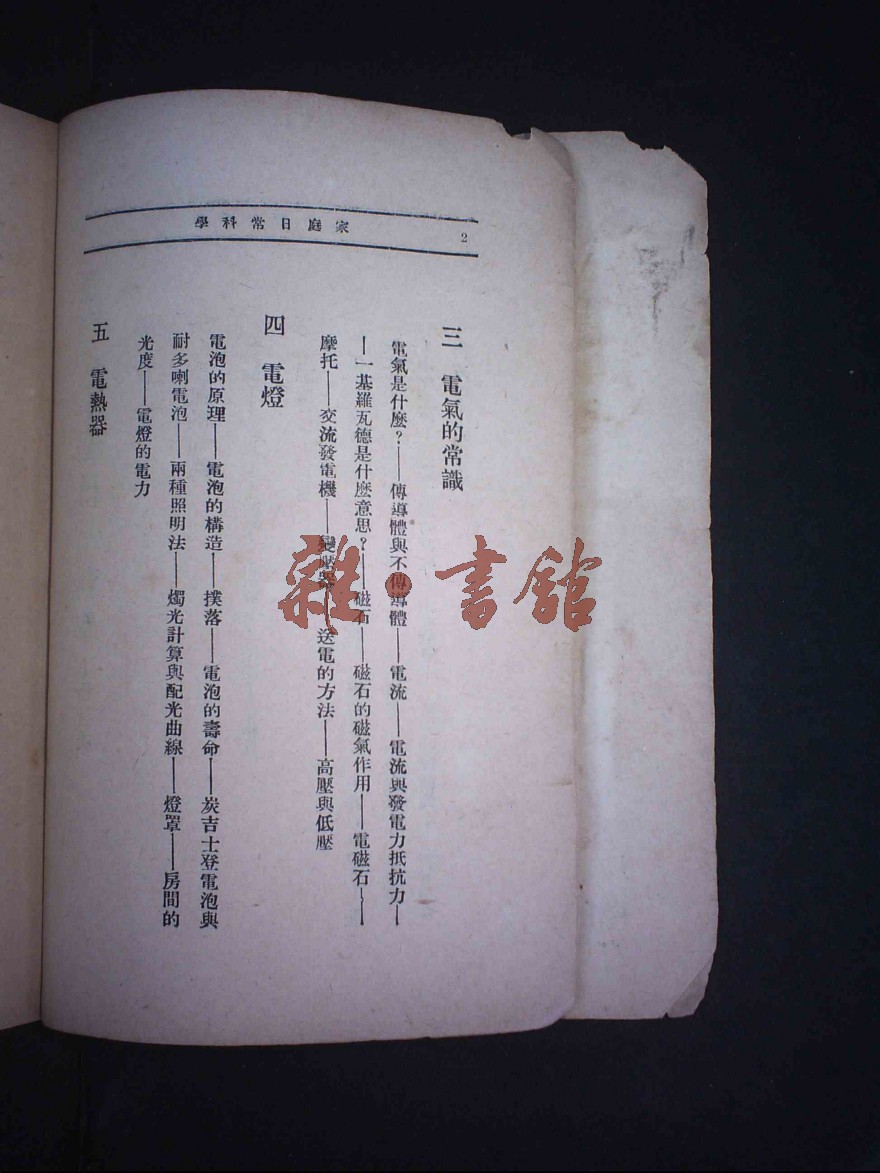 家庭日常科學
2
三 電氣的常識
電氣是什麼?——傳導體與不傳導體——電流——電流與發電力抵抗力—
—一基羅瓦德是什麼意思?——磁石——磁石的磁氣作用——電磁石——
摩托——交流發電機——變壓器——送電的方法——高壓與低壓
四 電燈
電泡的原理——電泡的構造——撲落——電泡的壽命——炭吉士登電泡與
耐多喇電泡——兩種照明法——燭光計算與配光曲線——燈罩——房間的
光度——電燈的電力
五 電熱器
雜·書館